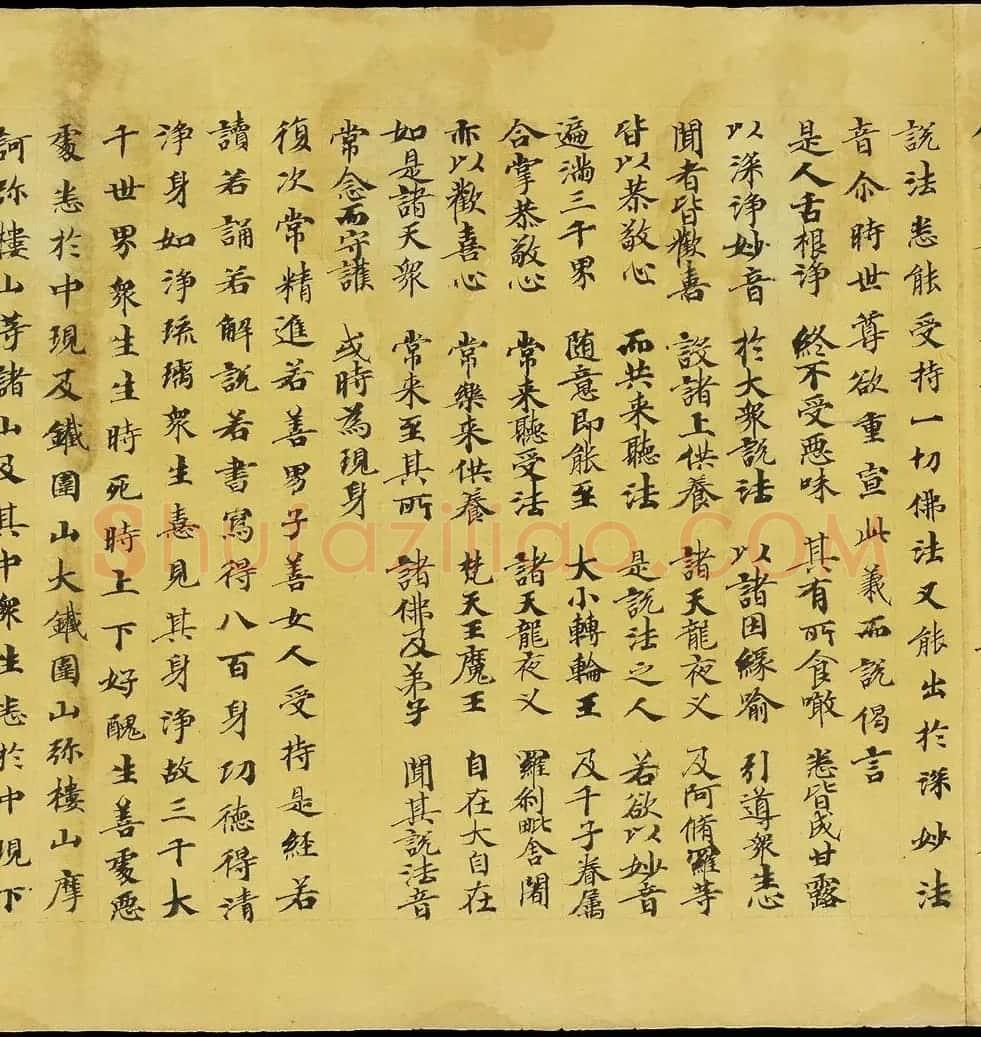 說法悉能受持一切佛法又能出於深妙法
音尒時世尊欲重宣此義而說偈言
是人舌根淨 終不受惡味 其有所食噉 悉皆成甘露
以深淨妙音 於大衆說法 以諸因緣喻 引導衆生心
聞者皆歡喜 設諸上供養 諸天龍夜叉 及阿脩羅等
皆以恭敬心 而共来聽法 是說法之人 若欲以妙音
遍滿三千界 随意即能至 大小轉輪王 及千子眷属
合掌恭敬心 常来聽受法 諸天龍夜叉 羅刹毗舍闍
亦以歡喜心 常樂来供養 梵天王魔王 自在大自在
如是諸天衆 常来至其所 諸佛及弟子 聞其說法音
常念而守護 或時為現身
復次常精進若善男子善女人受持是経若
讀若誦若解說若書寫得八百身功德得清
淨身如淨琉璃衆生憙見其身淨故三千大
千世界衆生生時死時上下好醜生善處惡
處悉於中現及鐵圍山大鐵圍山弥樓山摩
訶弥樓山等諸山及其中衆生悉於中現下
Shufaziliao.COM